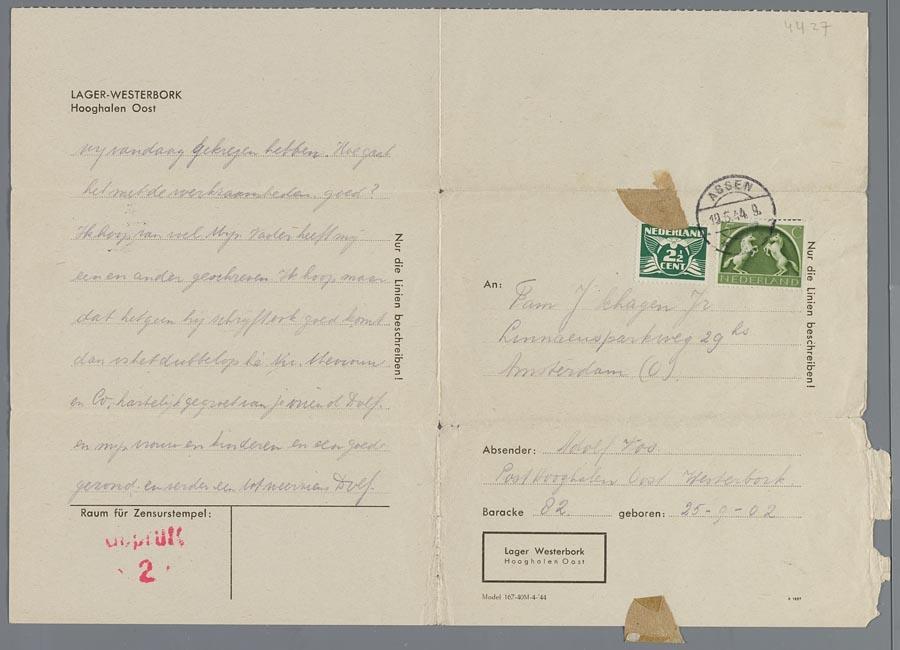 4427
LAGER-WESTERBORK
Hooghalen Oost
wij vandaag gekregen hebben. Hoe gaat
het met de werkzaamheden. goed?
Ik hoop van wel. Mijn Vader heeft mij
een en ander geschreven. Ik hoop maar
dat hetgeen hij schrijft ook goed komt
dan is het dubbelop hè. Nu. Mevrouw
en Co, hartelijk gegroet van je vriend Dolf.
en mijn vrouw en kinderen en een goede
gezond. en verder een tot weerziens Dolf.
Nur die Linien beschreiben!
Raum für Zensurstempel:
Geprüft
2
ASSEN
19.5.44. 9.
NEDERLAND
2½
CENT
NEDERLAND
An: Fam J Schagen Jr
Linnaeusparkweg 29 hs
Amsterdam (O)
Nur die Linien beschreiben!
Absender: Adolf Vos
Post Hooghalen Oost Westerbork
Baracke 82 geboren: 25-9-02
Lager Westerbork
Hooghalen Oost
Model 167-40M-4-'44